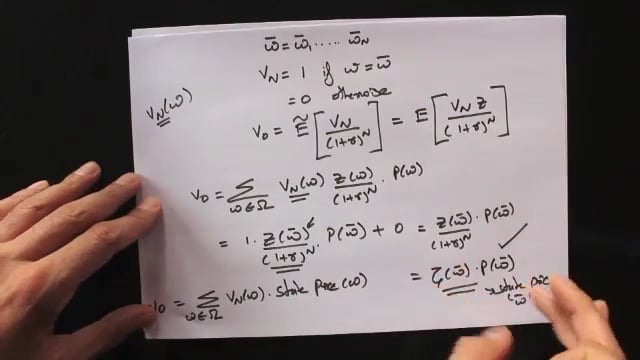 ω̄ = ω̄₁ ..... ω̄_N
V_N = 1 if ω = ω̄
= 0 otherwise
V_N(ω)
V₀ = Ẽ [ V_N / (1+r)^N ] = E [ V_N Z / (1+r)^N ]
V₀ = Σ_{ω∈Ω} V_N(ω) Z(ω) / (1+r)^N . P(ω)
= 1 . Z(ω̄) / (1+r)^N . P(ω̄) + 0 = Z(ω̄) / (1+r)^N . P(ω̄)
= ζ(ω̄) . P(ω̄)
→ state price (ω̄)
= Σ_{ω∈Ω} V_N(ω) . State Price (ω)